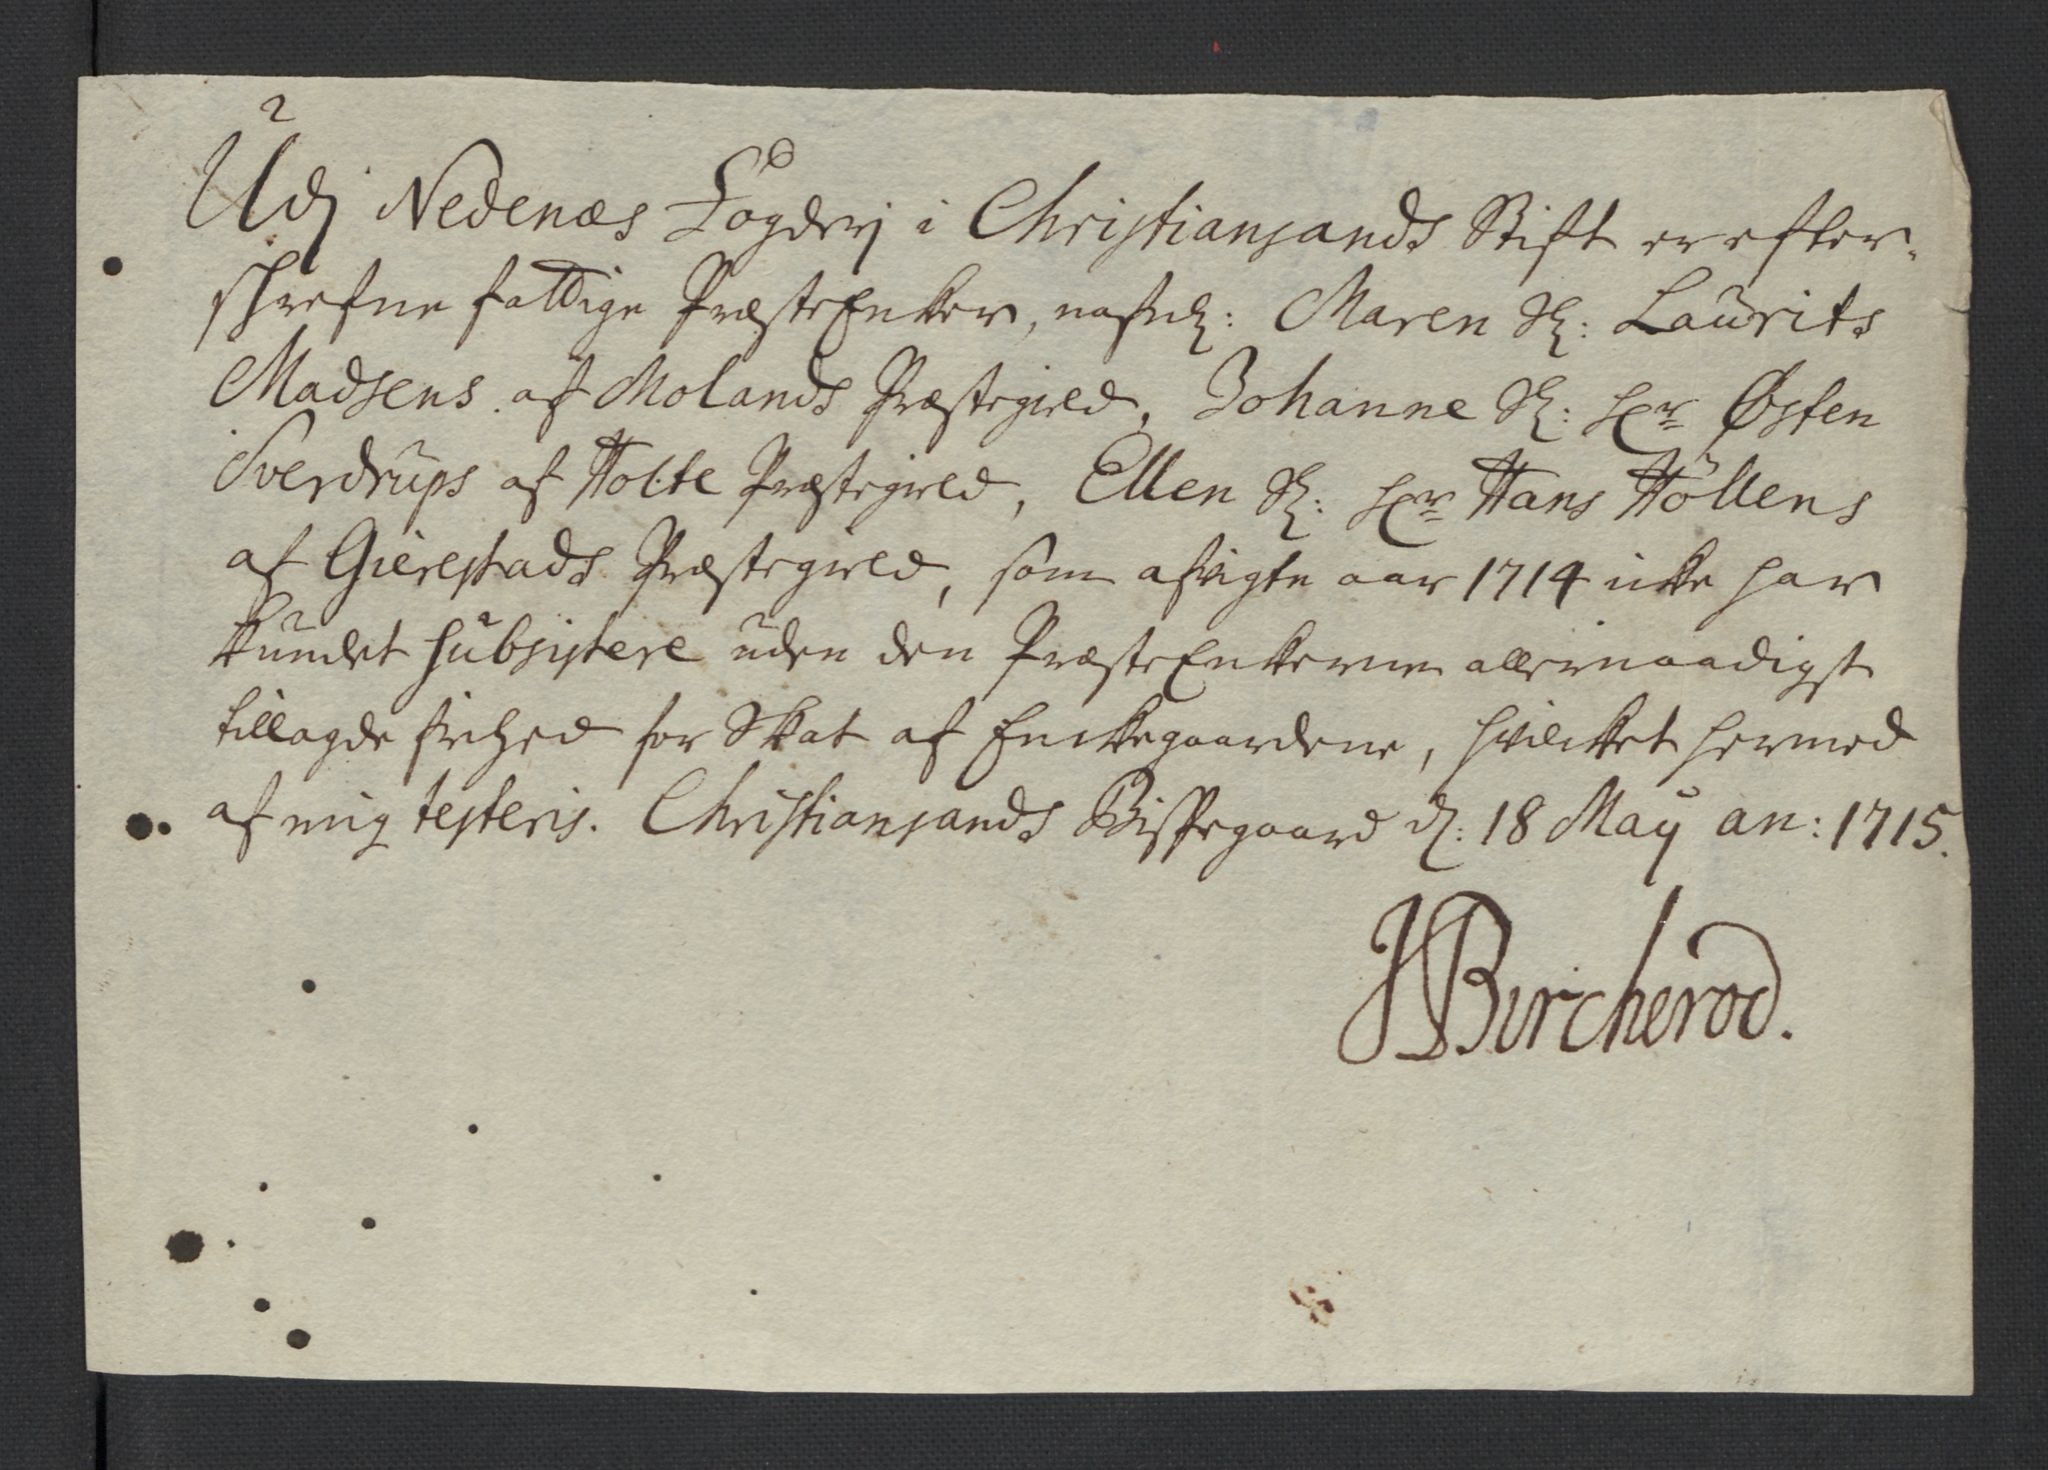 Udj Nedenæs Fogderj i Christiansands Stift er efter-
skrefne fattige PræsteEnker, nafnl: Maren Sl: Laurits
Madsens af Molands Præstegield, Johanne Sl: Hr Østen
Sverdrups af Holte Præstegield, Ellen Sl: Hr Hans Höllens
af Gierestads Præstegield, som afvigte aar 1714 icke har
kundet subsistere uden den PræsteEnckerne allernaadigst
tillagde frihed for Skat af Enckegaardene, hvilcket hermed
af mig testeris. Christiansands Bispegaard d: 18 Maÿ an: 1715.
JBircherod.